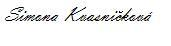 Simona Kvasničková